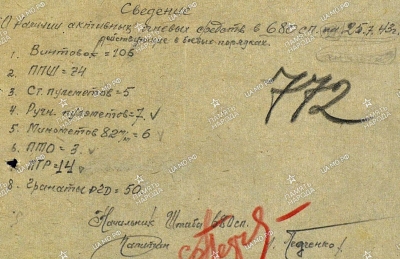 Сведение
О наличии активных огневых средств в 680 сп. на 25.7.43г.
действующие в боевых порядках.
1. Винтовок = 106
2. ППШ = 24
3. Ст. пулеметов = 5
4. Ручн. пулеметов = 7. ✓
5. Минометов 82 м/м = 6 ✓
6. ПТО = 3. ✓
ПТР = 14
8. Гранатов РГД = 50.
772
Начальник Штаба 680 сп.
Капитан